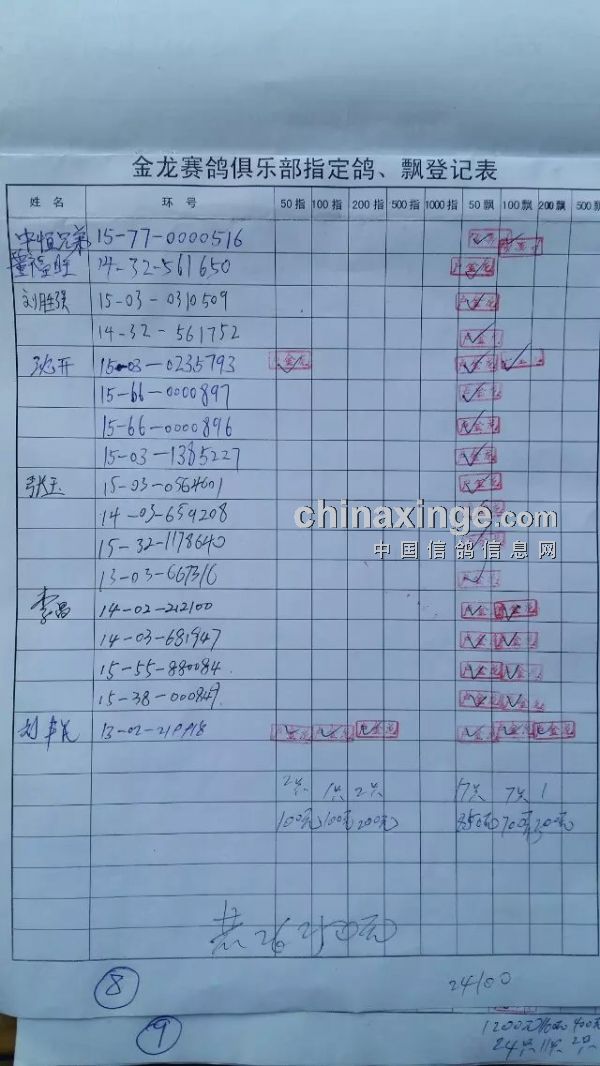 金龙赛鸽俱乐部指定鸽、飘登记表
姓 名 环 号 50指 100指 200指 500指 1000指 50飘 100飘 200飘 500飘
中恒兄弟 15-77-0000516
14-32-561650
刘胜强 15-03-0310509
14-32-561752
15-03-0235793
15-66-0000897
15-66-0000896
15-03-1385227
张玉 15-03-0564601
14-03-659208
15-32-1178640
13-03-667316
李昌 14-02-212100
14-03-681947
15-55-880084
15-38-000849
13-02-219918
2只 1只 2只 17只 7只 1
100元 100元 200元 850元 700元 200元
共26250元
24100
8
9
1200元 400元
24只 11只 2只
chinaxinge.com
中国信鸽信息网